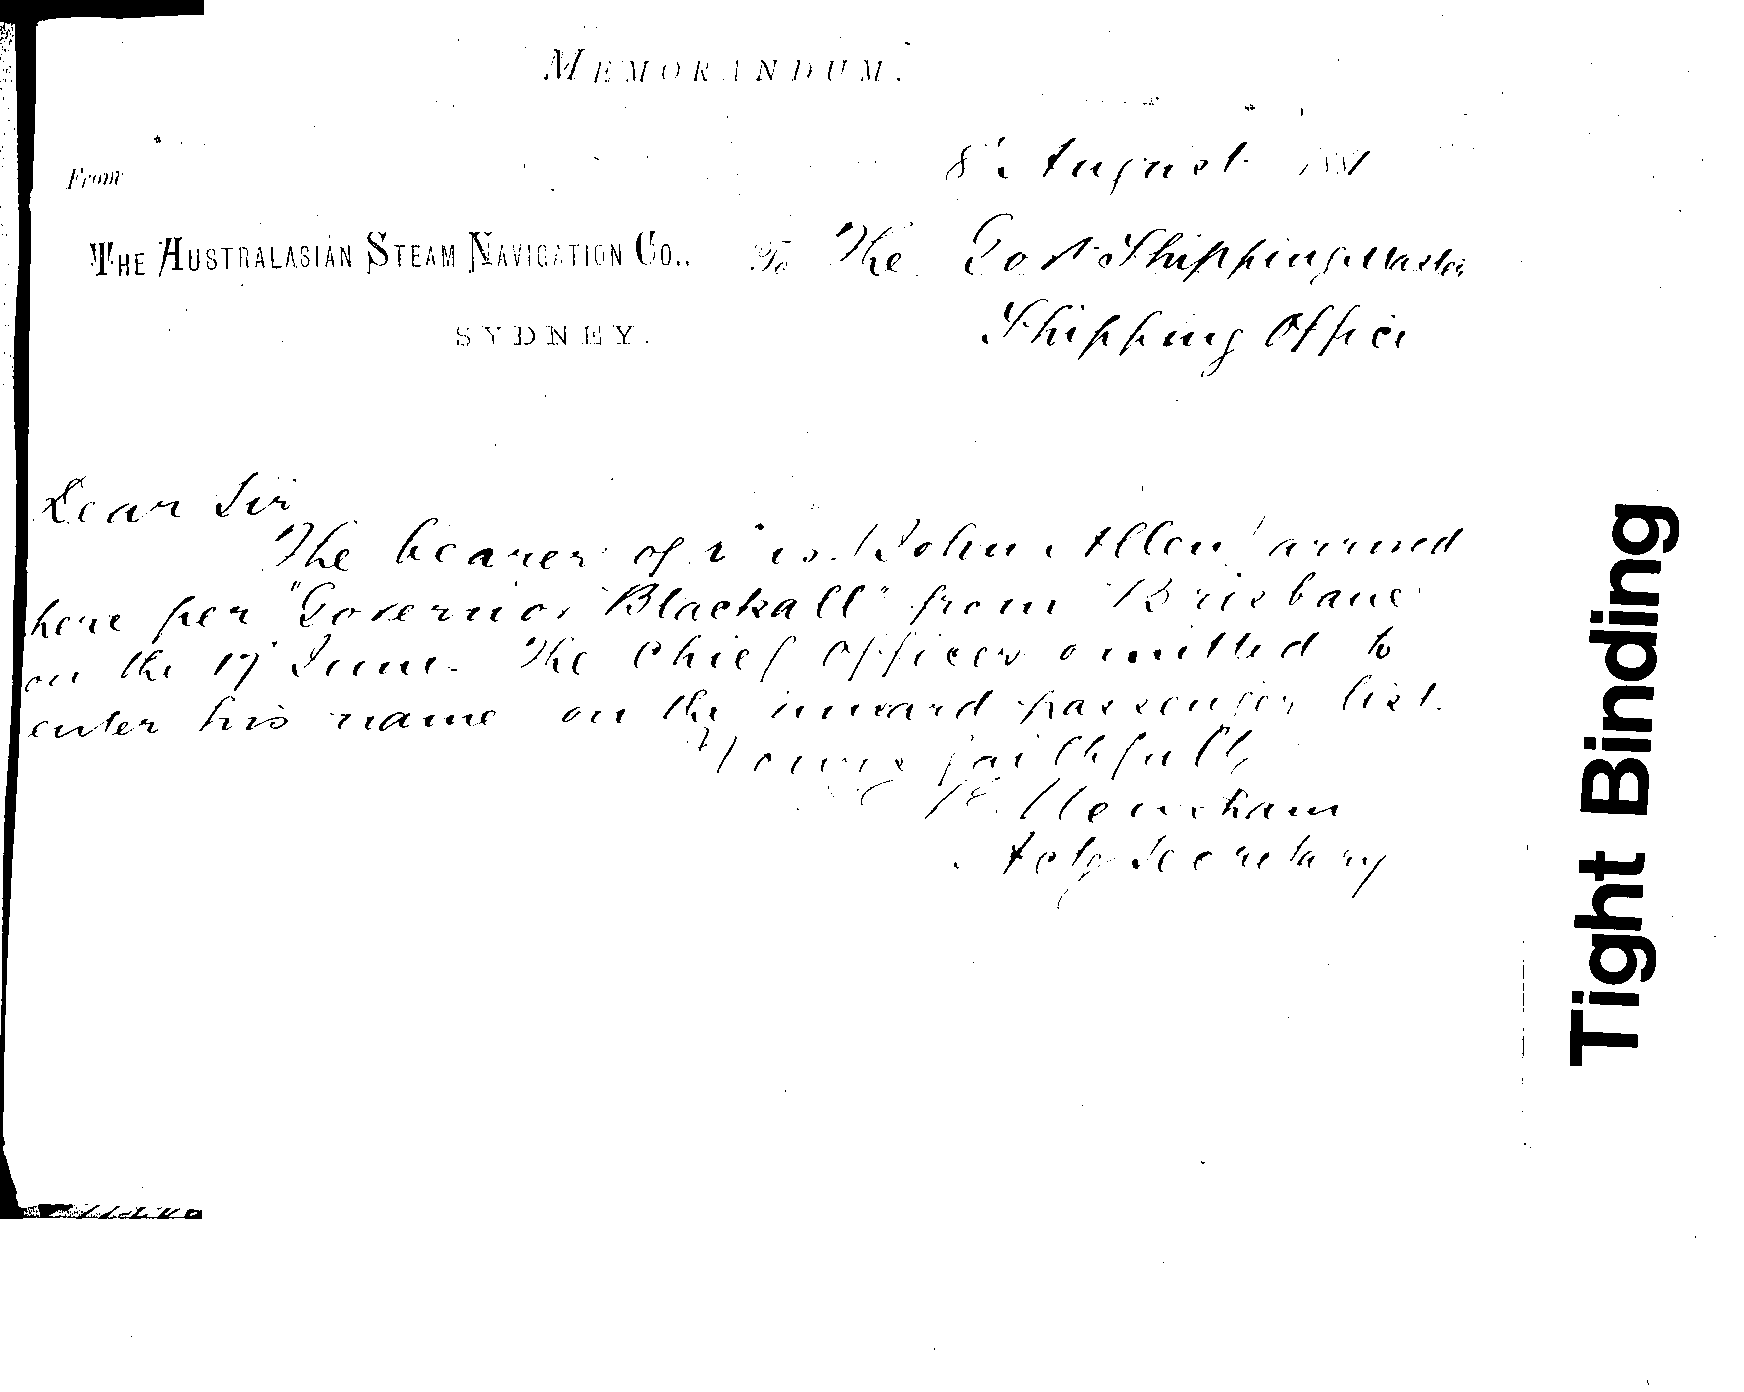 MEMORANDUM.
8th August 1881
From
THE AUSTRALASIAN STEAM NAVIGATION CO.,
To The Govt Shipping Master
SYDNEY.
Shipping Office
Dear Sir
The bearer of this (John Allen) arrived
here per "Governor Blackall" from Brisbane
on the 17 June. The Chief Officer omitted to
enter his name on the inward passenger list.
Yours faithfully
Actg Secretary
Tight Binding